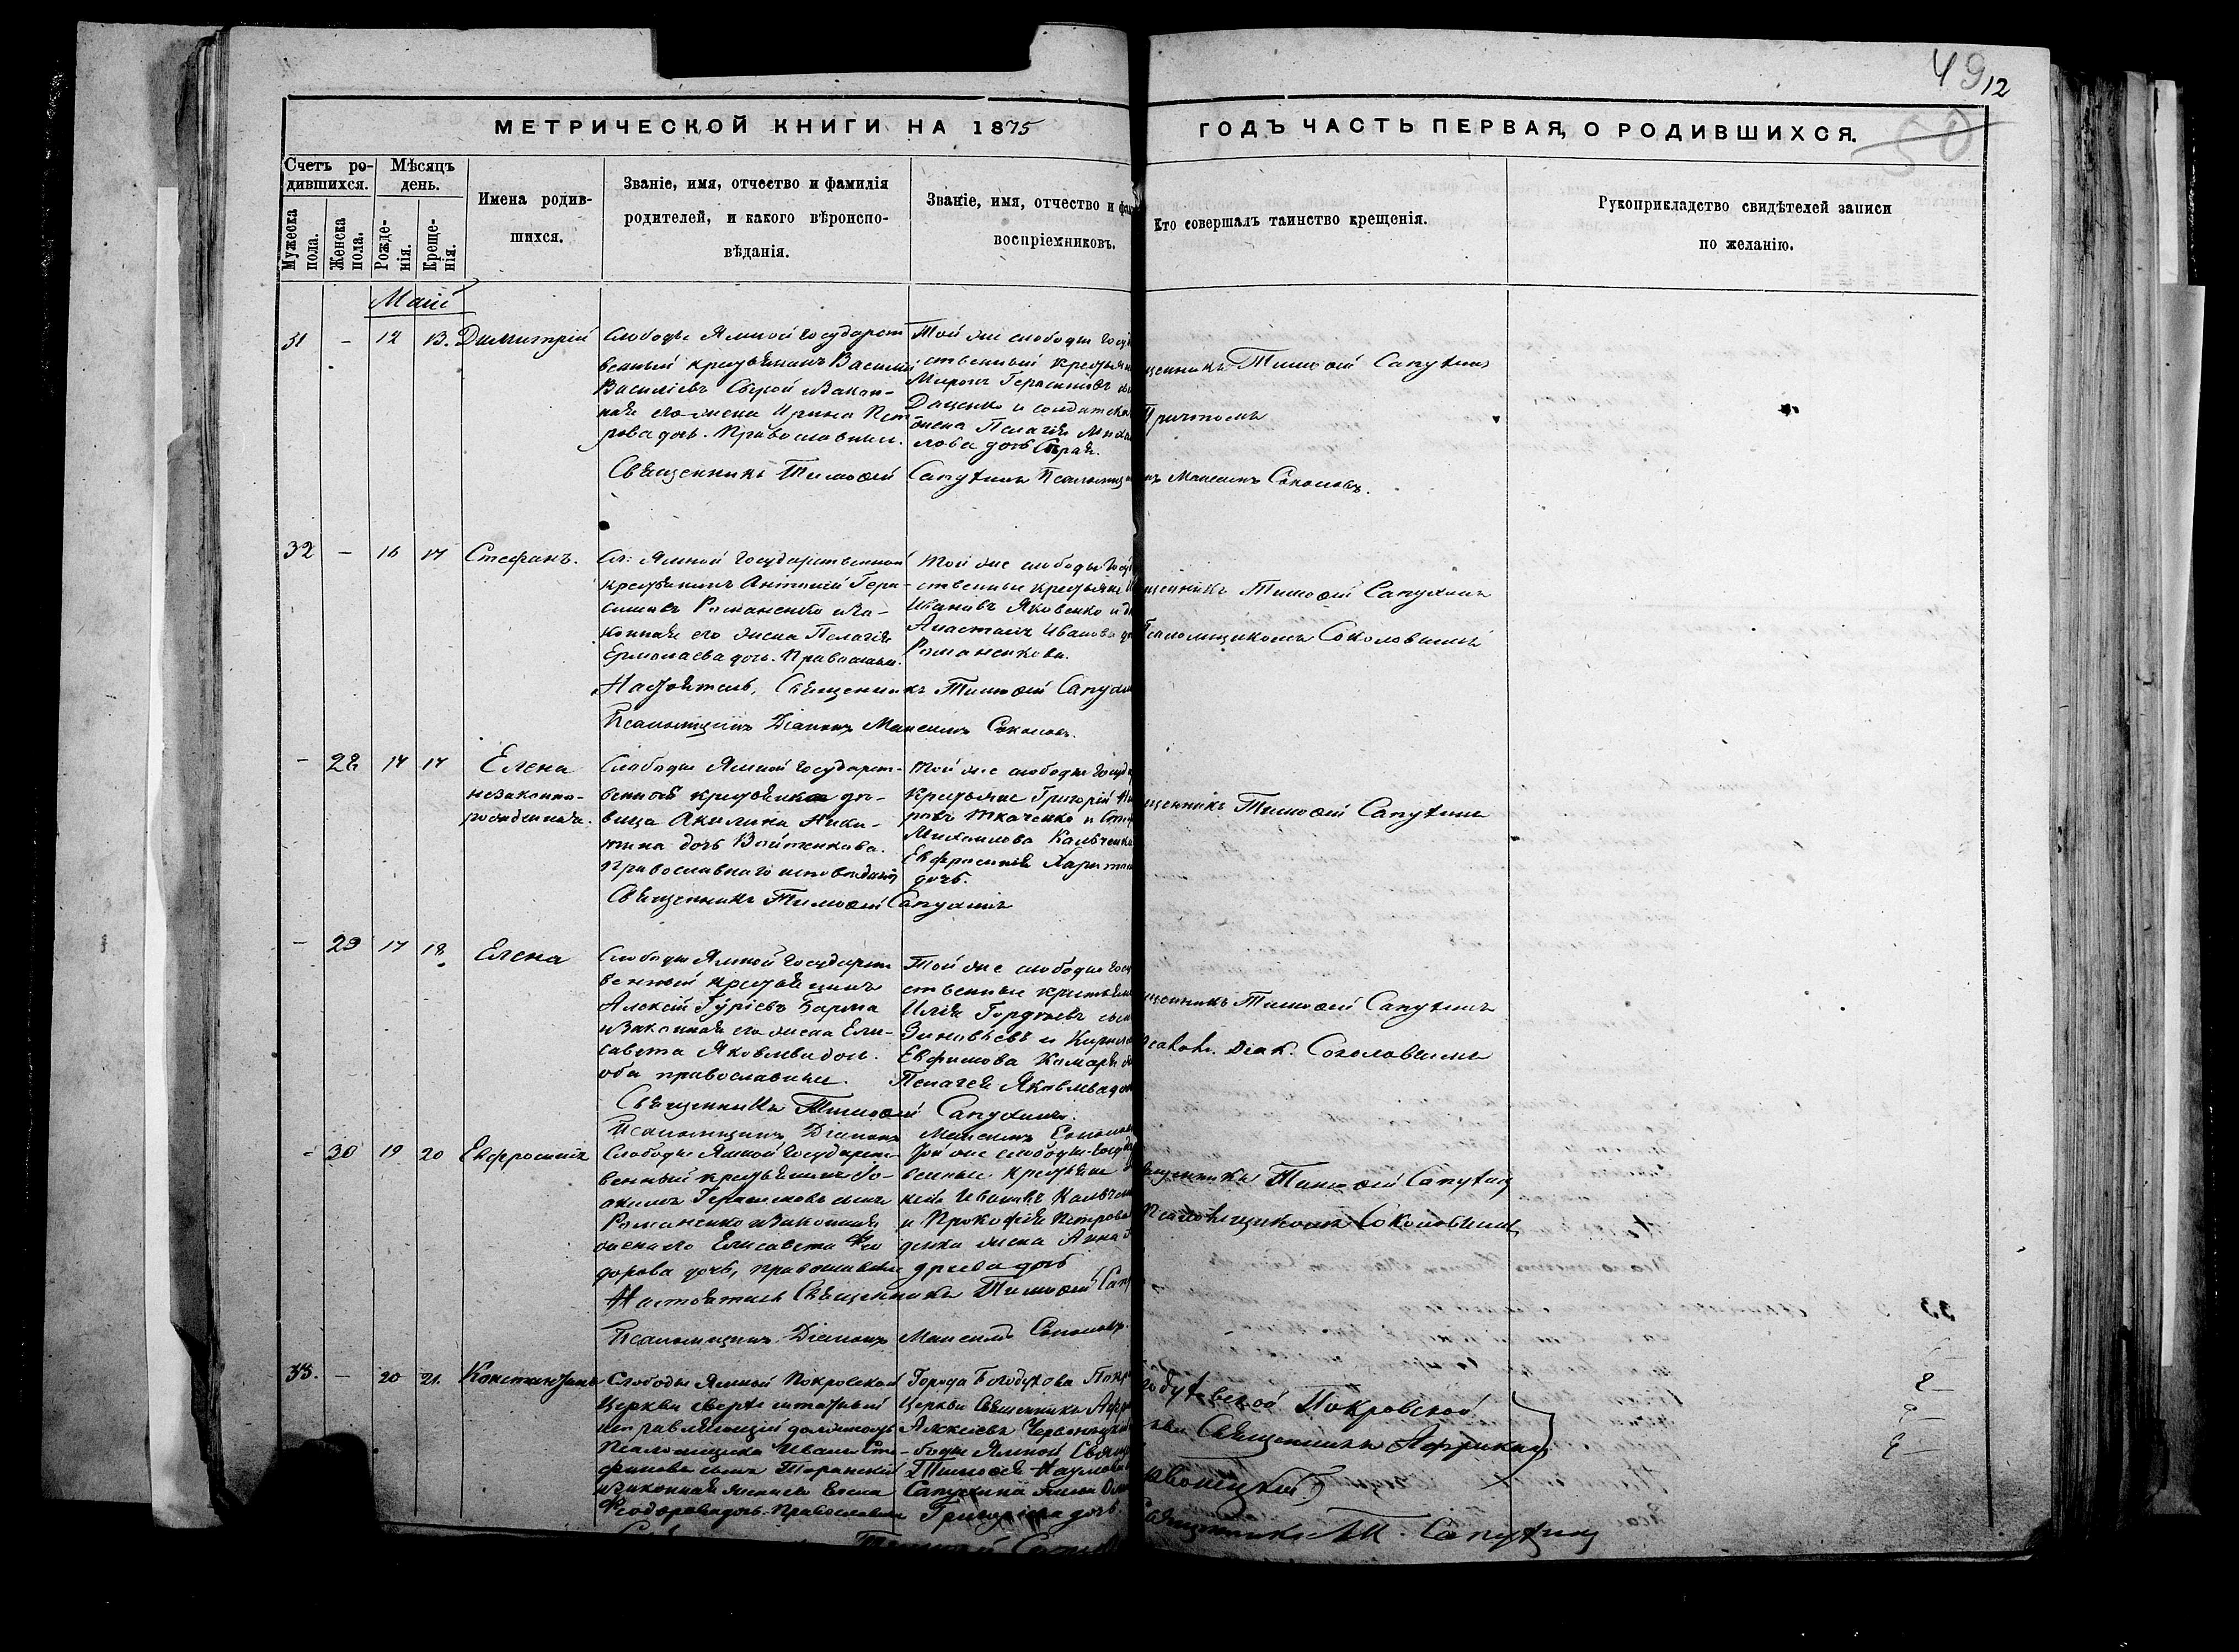 49 12
50
МЕТРИЧЕСКОЙ КНИГИ НА 1875
ГОДЪ ЧАСТЬ ПЕРВАЯ, О РОДИВШИХСЯ.
Счетъ ро-
дившихся.
Мужеска
пола.
Женска
пола.
Мѣсяцъ
день.
Рожде-
нія.
Креще-
нія.
Имена родив-
шихся.
Званіе, имя, отчество и фамилія
родителей, и какого вѣроиспо-
вѣданія.
Званіе, имя, отчество и фам
воспріемниковъ.
Кто совершалъ таинство крещенія.
Рукоприкладство свидѣтелей записи
по желанію.
Маій
31 - 12 13. Димитрій
Слободы Ямной Государст
венный крестьянинъ Василій
Василіевъ Сѣрой и закон-
ная его жена Ирина Пет
рова дочь. Православные.
Той же слободы Госуд
ственный крестьян
Миронъ Герасимовъ
Даценко и солдатска
жена Пелагія Миха
лова дочь Сѣрая.
щенникъ Тимоѳей Сапухинъ
Причтомъ
Священникъ Тимоѳей Сапухинъ Псаломщ
къ Максимъ Соколовъ.
32 - 16 17 Стефанъ.
Сл: Ямной Государственной
крестьянинъ Антоній Гера
симовъ Романенко и за-
конная его жена Пелагія
Ермолаева дочь. Православн.
Той же слободы Госуд
ственные крестьяне
Ивановъ Яковенко и д
Анастасія Иванова до
Романенкова.
щенникъ Тимоѳей Сапухинъ
Псаломщикомъ Соколовымъ
Настоятель, Священникъ Тимоѳей Сапухи
Псаломщикъ Діаконъ Максимъ Соколовъ.
- 28 17 17 Елена
незаконно-
рожденная.
Слободы Ямной Государст-
венной крестьянка дѣ-
вица Акилина Ники-
тина дочь Войтенкова.
Православнаго исповѣданія
Той же слободы Госуд
крестьяне Григорій
ровъ Ткаченко и
Михаилова Кальченк
Евфросинія Харитон
дочь.
щенникъ Тимоѳей Сапухинъ
Священникъ Тимоѳей Сапухинъ
- 29 17 18 Елена
Слободы Ямной Государст
венный крестьянинъ
Алексій Гуріевъ Барма
и законная его жена Ели-
савета Яковлева дочь.
оба православные.
Той же слободы Госу
ственные крестьян
Илія Гордѣевъ сын
Зиновьевъ и Кирилл
Евфимова Комаря
Пелагея Яковлева до
щенникъ Тимоѳей Сапухинъ
Псалом. Діак. Соколовымъ
Священникъ Тимоѳей Сапухинъ.
Псаломщикъ Діаконъ Максимъ Соколов
- 30 19 20 Евфросинія
Слободы Ямной Государст
венный крестьянинъ Іо-
акимъ Герасимовъ сынъ
Романенко и законная
жена его Елисавета Ѳео
дорова дочь, православные
Той же слободы Госуда
венные крестьяне
кей Ивановъ Кальчен
и Прокофія Петрова
денка жена Анна
дреева дочь
священникъ Тимоѳей Сапухинъ
Псаломщикомъ Соколовымъ
Настоятель Священникъ Тимоѳей Сап
Псаломщикъ Діаконъ Максимъ Соколовъ.
33. - 20 21. Константинъ
Слободы Ямной Покровской
Церкви сверхштатный
исправляющій должность
Псаломщика Иванъ Сте-
фановъ сынъ Торанскій
и законная жена его Елена
Ѳеодорова дочь. Православные
Города Богодухова Покр
Церкви Священникъ Афри
Алексѣевъ Червонецкій
боды Ямной Священ
Тимоѳея Наумова
Сапухина жена
Григоріева дочь.
годуховской Покровской
кви Священникъ Африканъ
вонецкій
Священникъ Тим. Сапухинъ